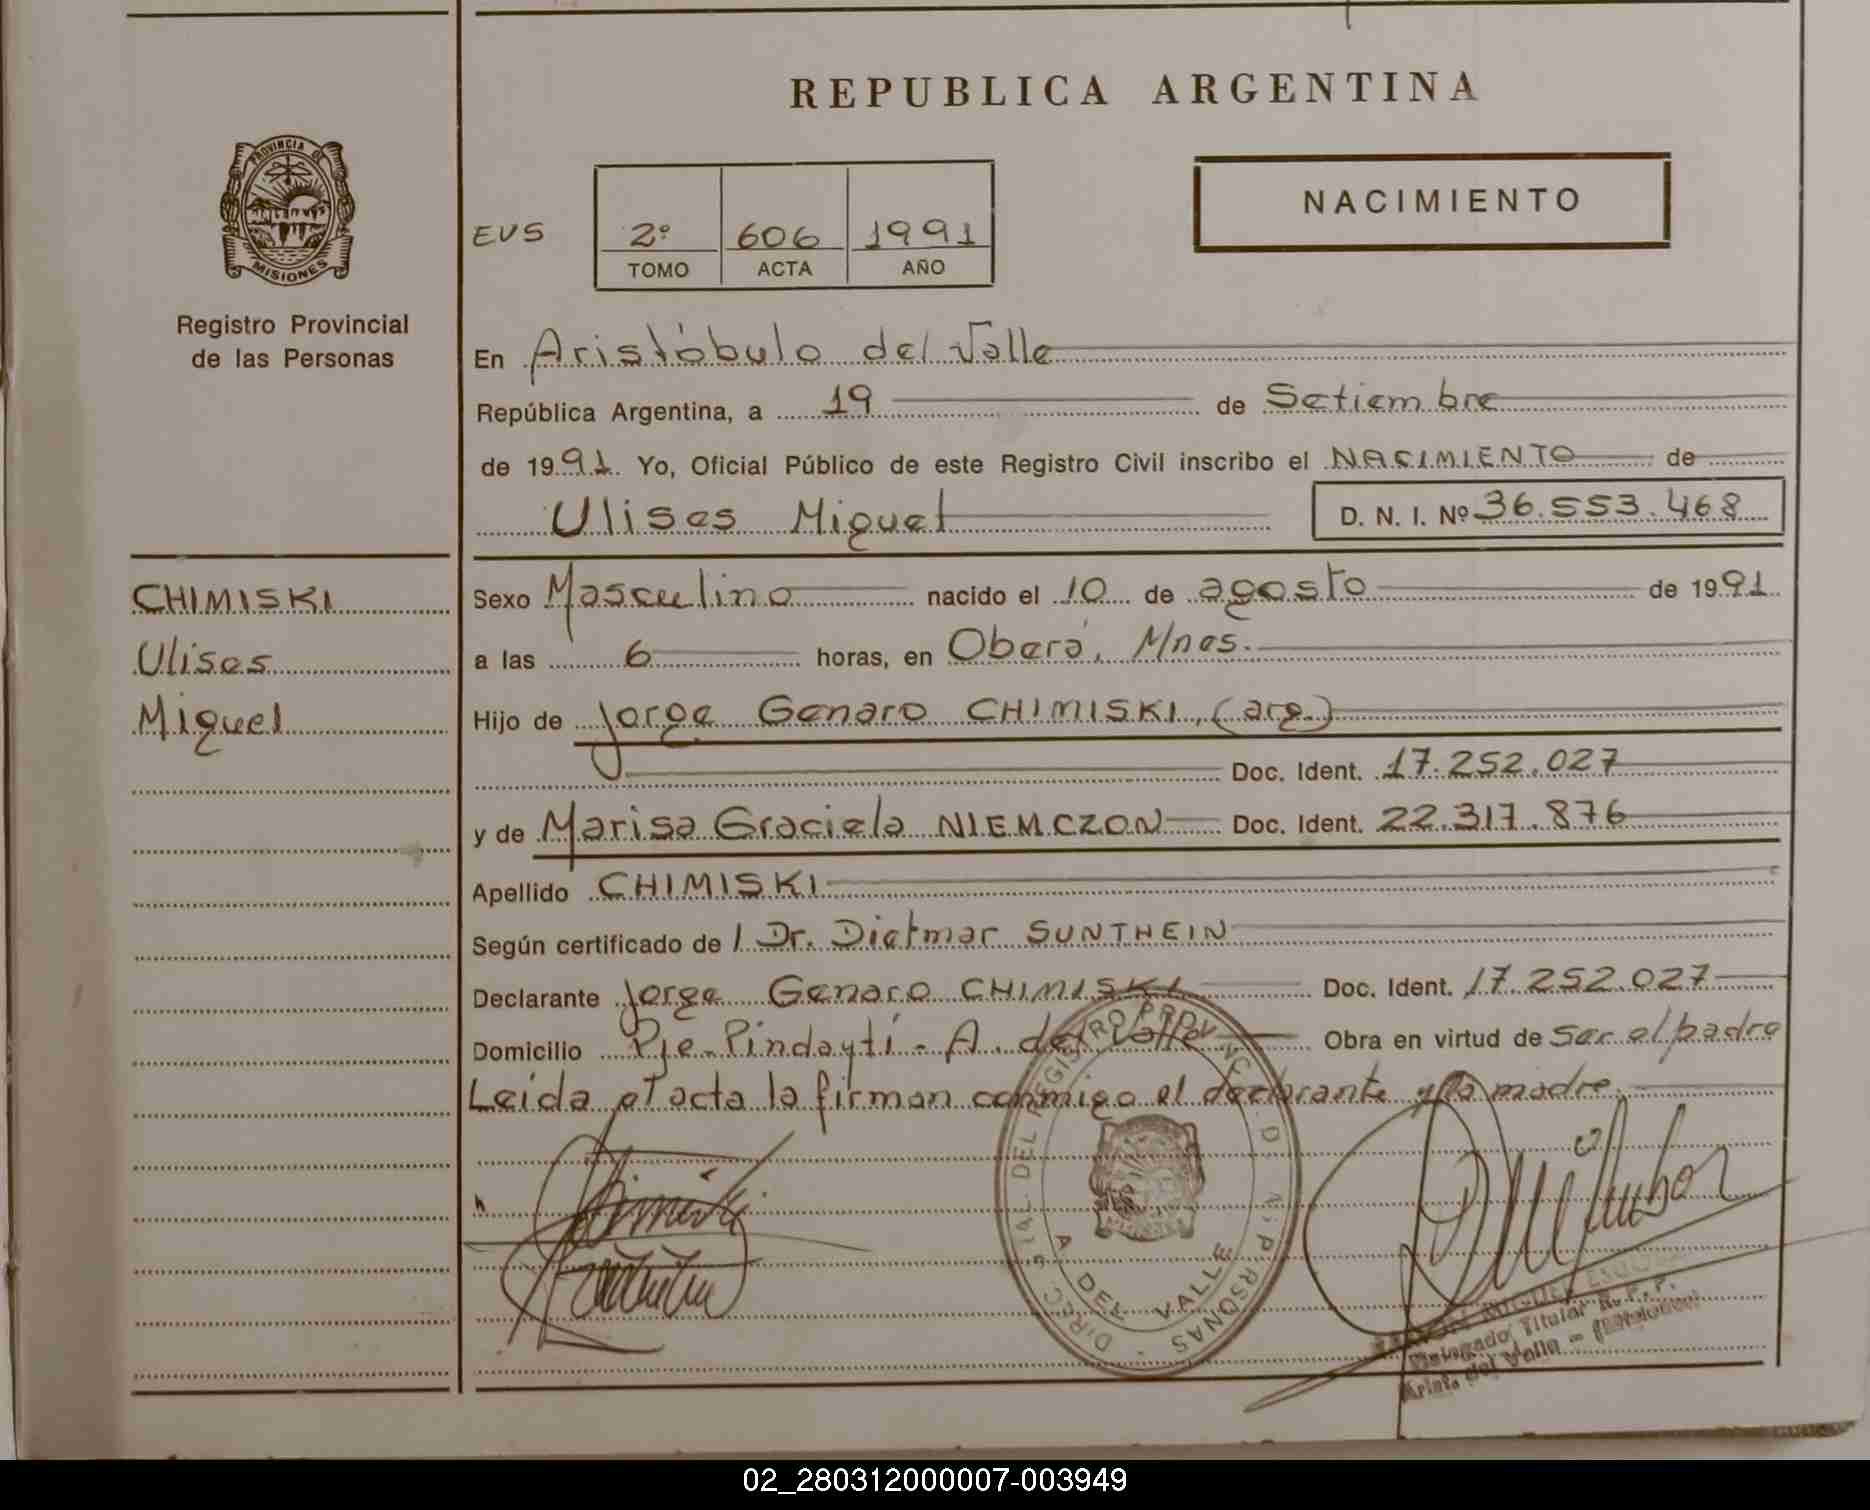 REPUBLICA ARGENTINA
PROVINCIA DE
MISIONES
Registro Provincial
de las Personas
NACIMIENTO
EVS
2º 606 1991
TOMO ACTA AÑO
En Aristóbulo del Valle
República Argentina, a 19 de Setiembre
de 1991. Yo, Oficial Público de este Registro Civil inscribo el NACIMIENTO de
Ulises Miguel D. N. I. Nº 36.553.468
CHIMISKI
Ulises
Miguel
Sexo Masculino nacido el 10 de agosto de 1991
a las 6 horas, en Oberá, Mnes.
Hijo de Jorge Genaro CHIMISKI, (arg.)
Doc. Ident. 17.252.027
y de Marisa Graciela NIEMCZON Doc. Ident. 22.317.876
Apellido CHIMISKI
Según certificado de / Dr. Dietmar SUNTHEIN
Declarante Jorge Genaro CHIMISKI Doc. Ident. 17.252.027
Domicilio Pje. Pindaytí - A. del Valle Obra en virtud de ser el padre
Leída el acta la firman conmigo el declarante y la madre.
A. DEL VALLE
Delegado Titular R.P.P.
Arist. del Valle - (Misiones)
02_280312000007-003949